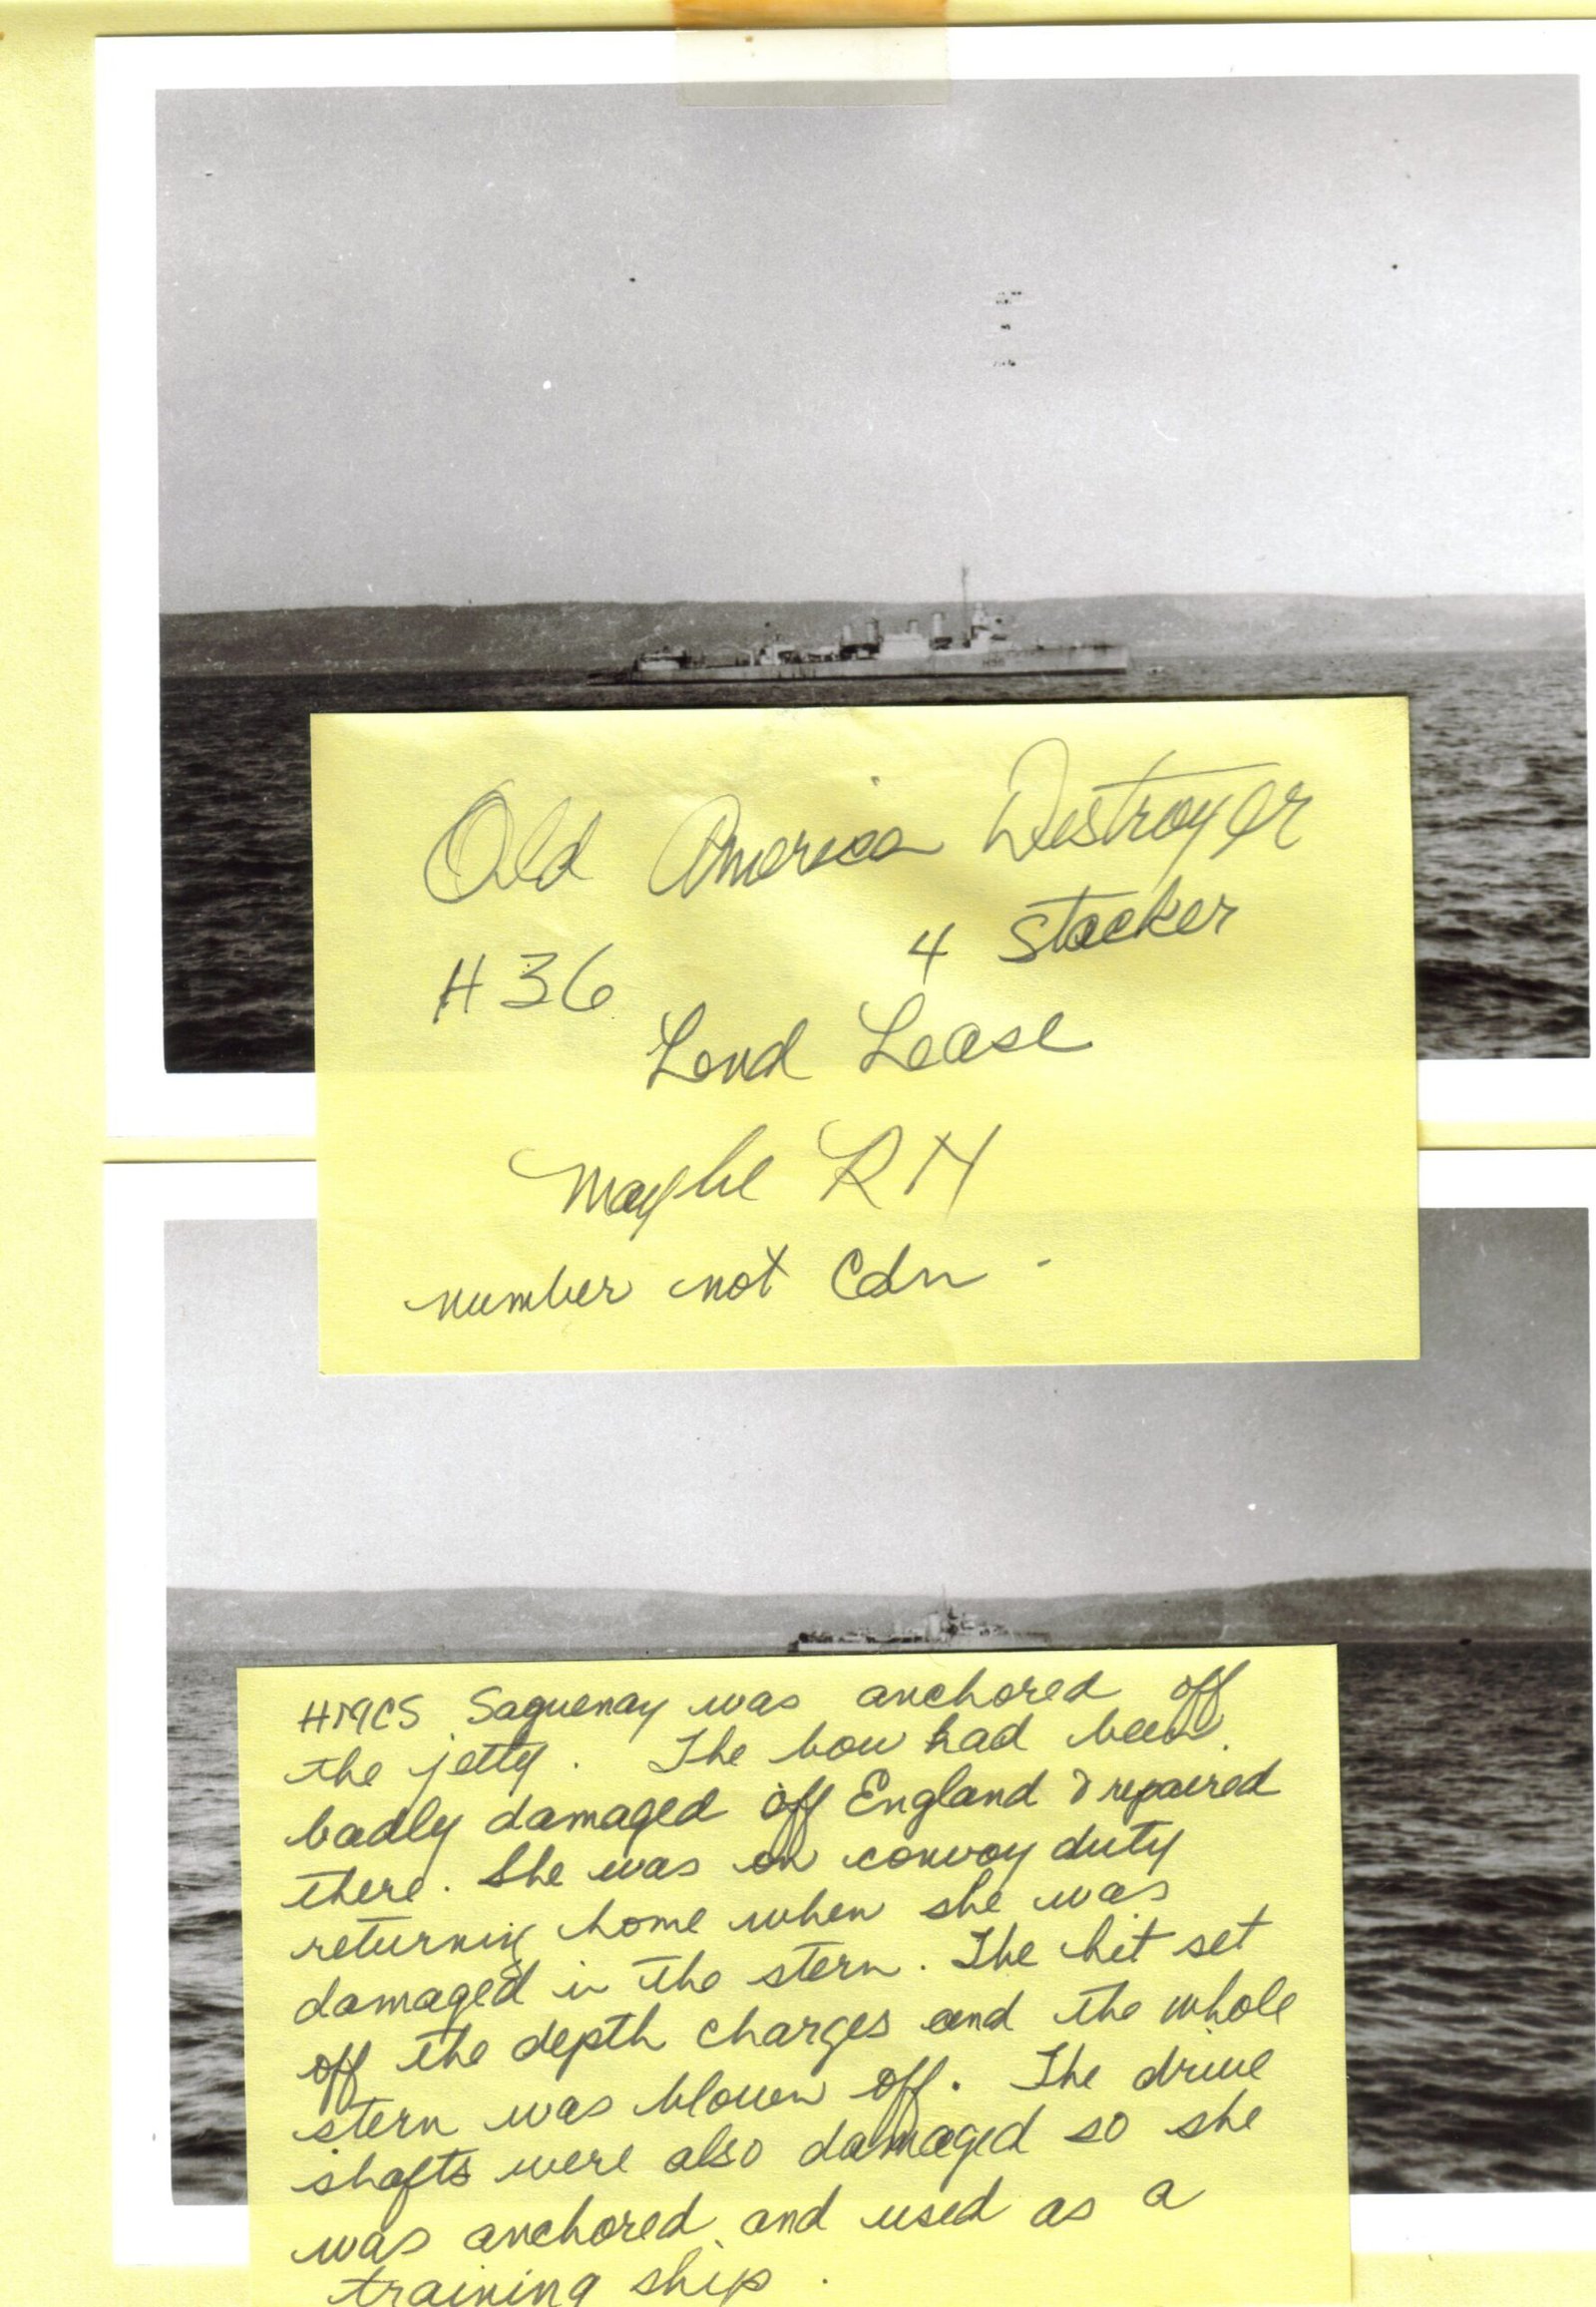 Old America Destroyer
4 stacker
H 36
Lend Lease
Maybe RN
number not Cdn -
HMCS Saguenay was anchored off
the jetty. The bow had been
badly damaged off England & repaired
there. She was on convoy duty
returning home when she was
damaged in the stern. The hit set
off the depth charges and the whole
stern was blown off. The drive
shafts were also damaged so she
was anchored and used as a
training ship.